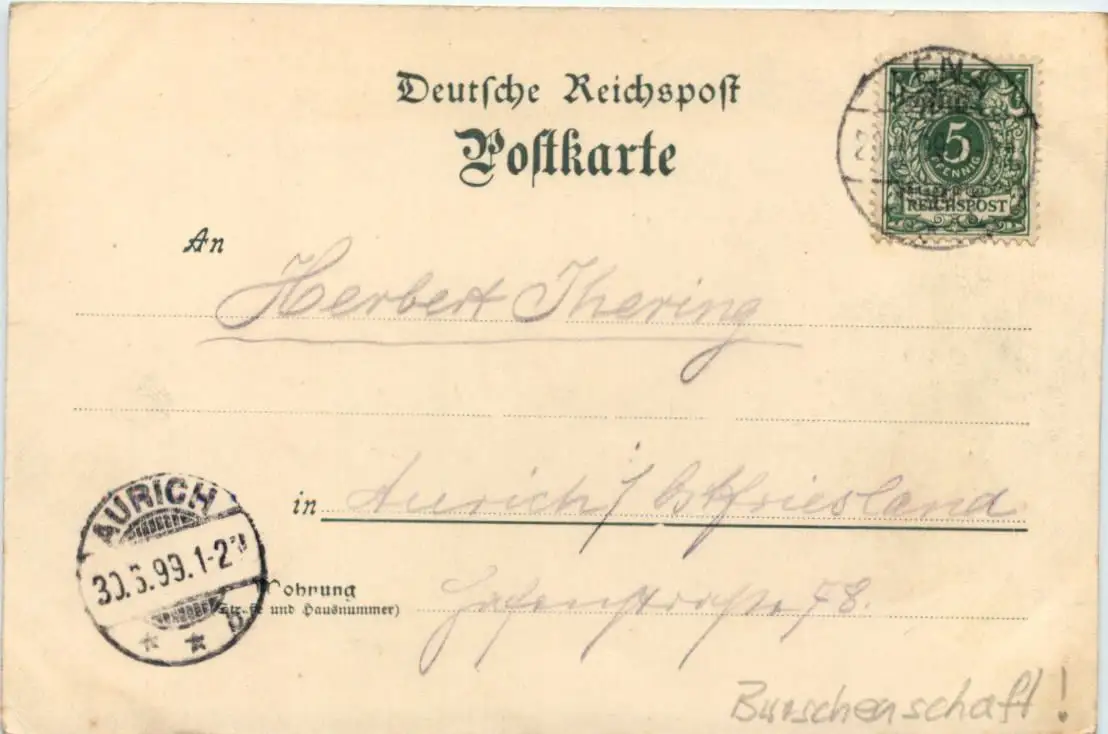 Deutsche Reichspost
Postkarte
5
PFENNIG
REICHSPOST
An
Herbert Ihering
in Aurich / Ostfriesland
Wohnung
(Straße und Hausnummer) Hafenstrasse 78.
AURICH
30.6.99.1-2N
* * b
Burschenschaft!